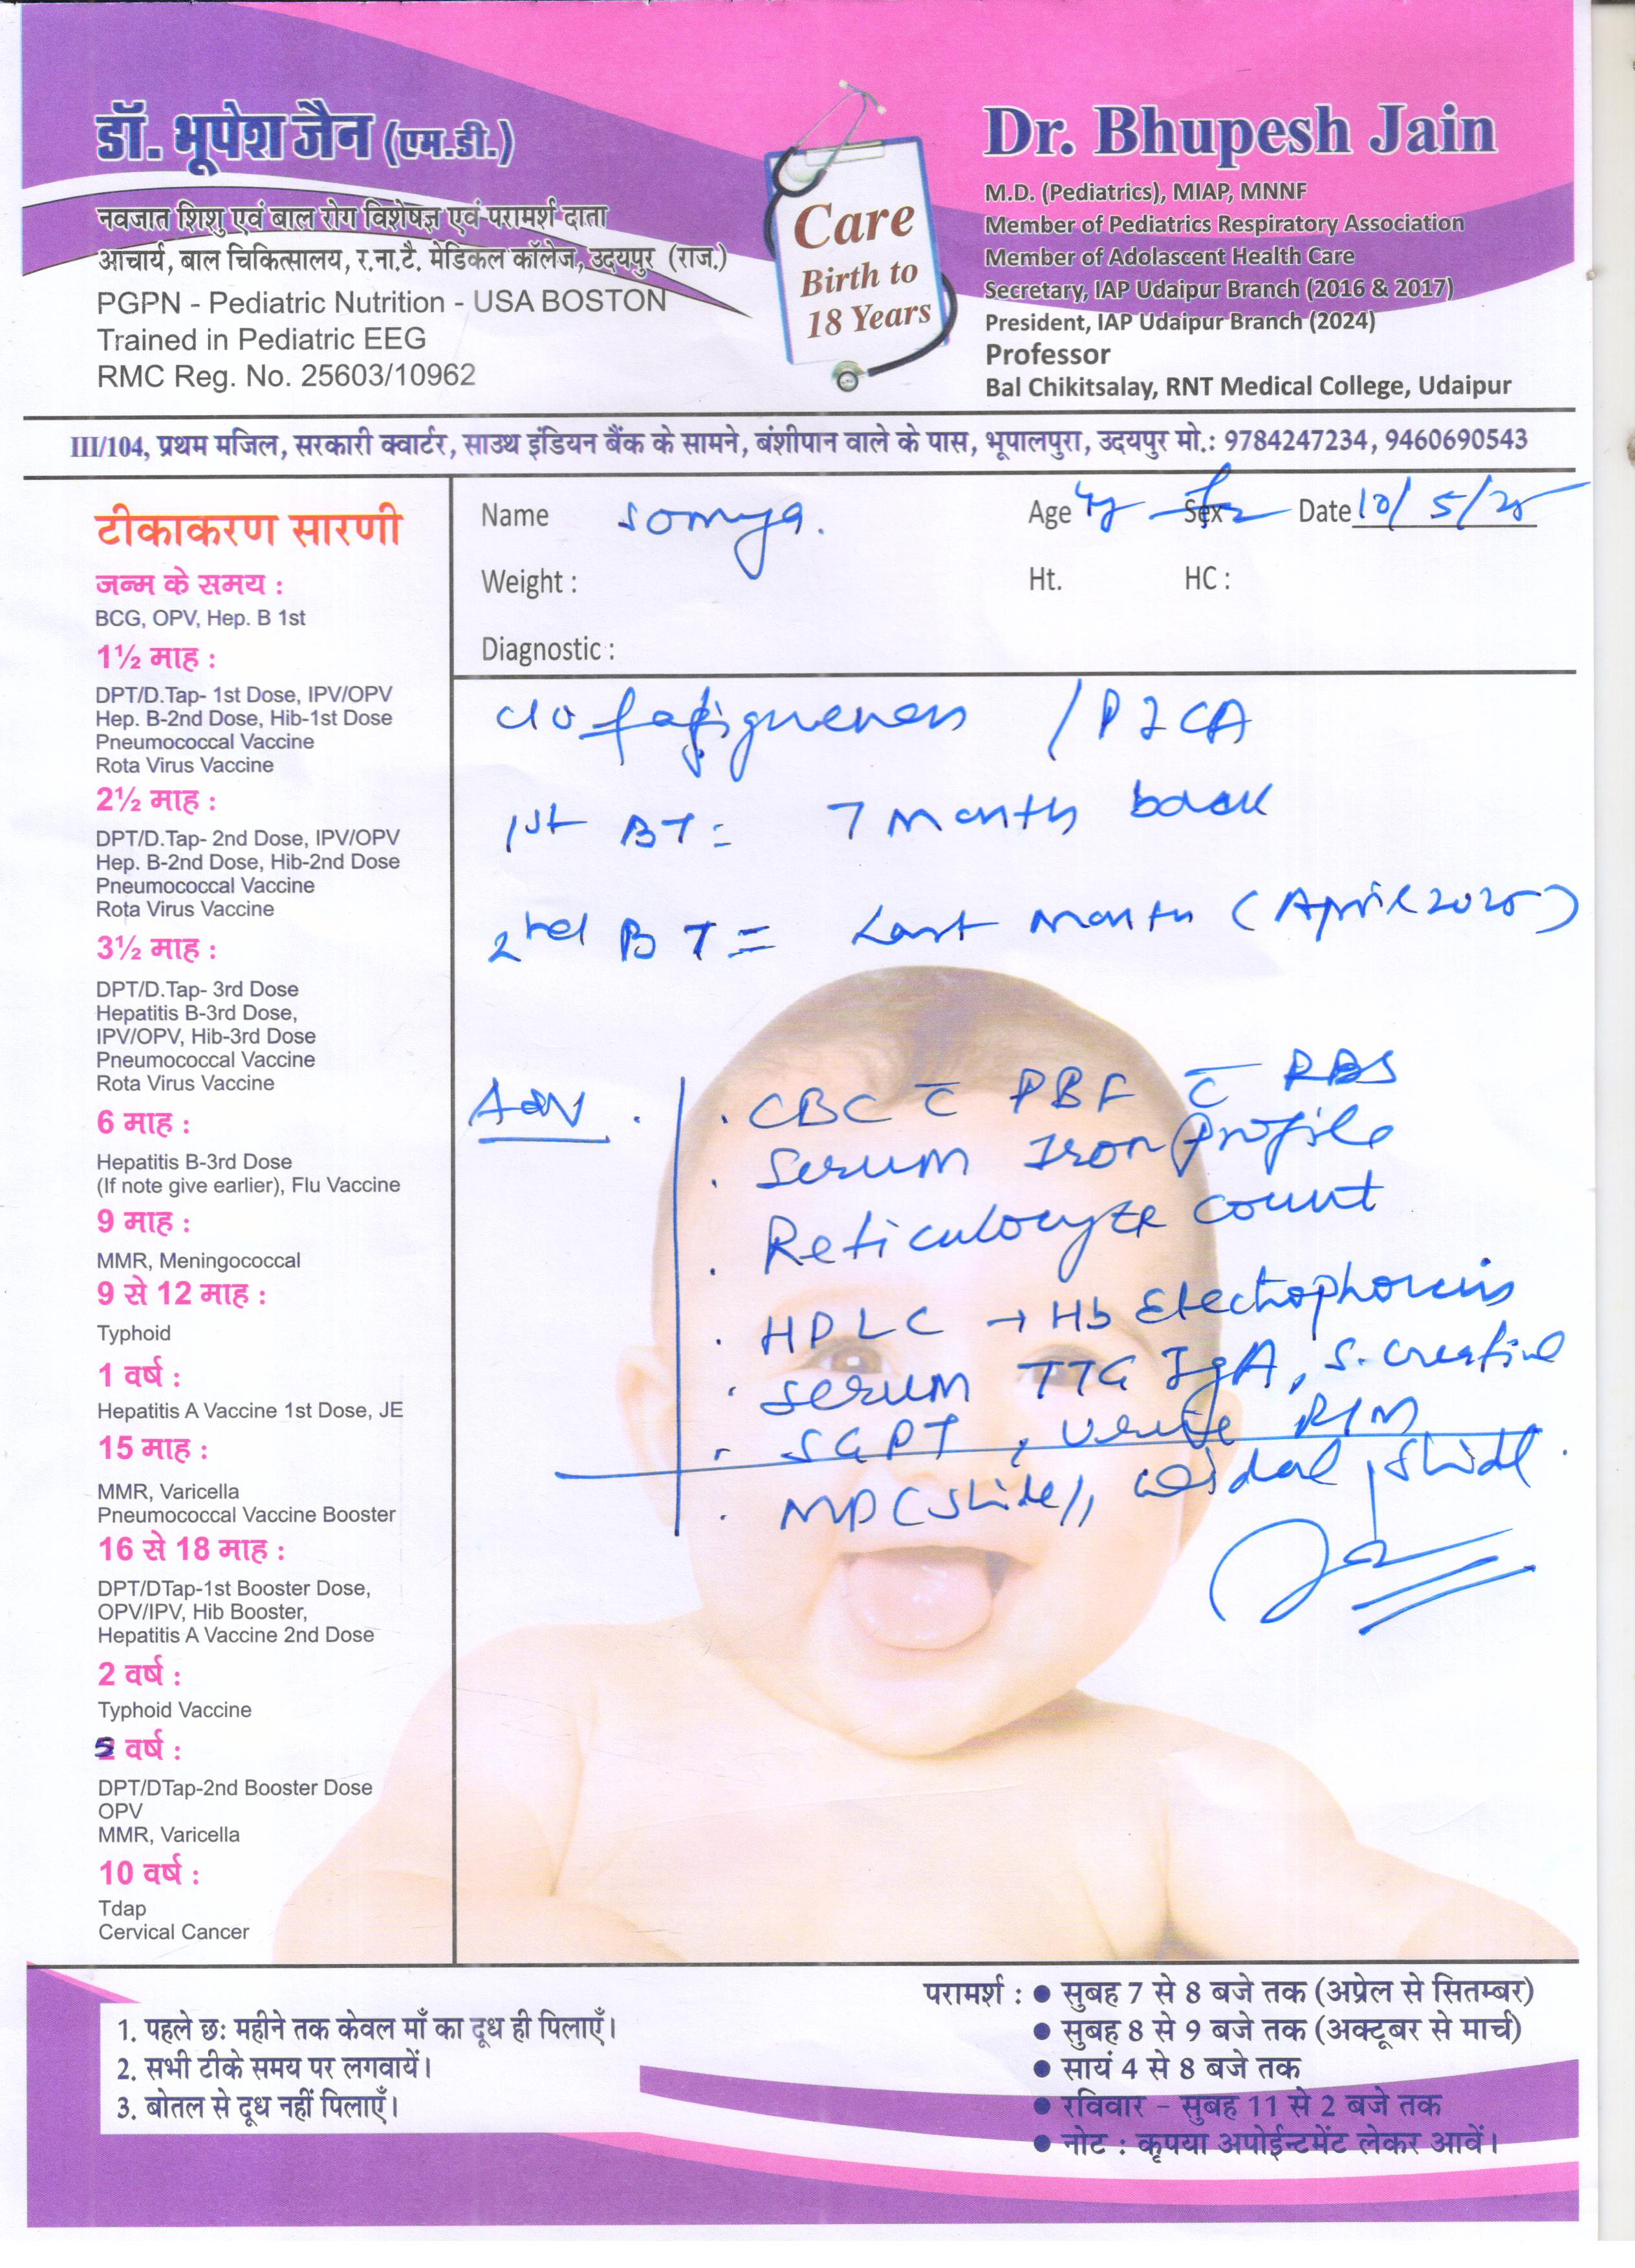 डॉ. भूपेश जैन (एम.डी.)
नवजात शिशु एवं बाल रोग विशेषज्ञ एवं परामर्श दाता
आचार्य, बाल चिकित्सालय, र.ना.टै. मेडिकल कॉलेज, उदयपुर (राज.)
PGPN - Pediatric Nutrition - USA BOSTON
Trained in Pediatric EEG
RMC Reg. No. 25603/10962
Care
Birth to
18 Years
Dr. Bhupesh Jain
M.D. (Pediatrics), MIAP, MNNF
Member of Pediatrics Respiratory Association
Member of Adolascent Health Care
Secretary, IAP Udaipur Branch (2016 & 2017)
President, IAP Udaipur Branch (2024)
Professor
Bal Chikitsalay, RNT Medical College, Udaipur
III/104, प्रथम मजिल, सरकारी क्वार्टर, साउथ इंडियन बैंक के सामने, बंशीपान वाले के पास, भूपालपुरा, उदयपुर मो.: 9784247234, 9460690543
टीकाकरण सारणी
जन्म के समय :
BCG, OPV, Hep. B 1st
1½ माह :
DPT/D.Tap- 1st Dose, IPV/OPV
Hep. B-2nd Dose, Hib-1st Dose
Pneumococcal Vaccine
Rota Virus Vaccine
2½ माह :
DPT/D.Tap- 2nd Dose, IPV/OPV
Hep. B-2nd Dose, Hib-2nd Dose
Pneumococcal Vaccine
Rota Virus Vaccine
3½ माह :
DPT/D.Tap- 3rd Dose
Hepatitis B-3rd Dose,
IPV/OPV, Hib-3rd Dose
Pneumococcal Vaccine
Rota Virus Vaccine
6 माह :
Hepatitis B-3rd Dose
(If note give earlier), Flu Vaccine
9 माह :
MMR, Meningococcal
9 से 12 माह :
Typhoid
1 वर्ष :
Hepatitis A Vaccine 1st Dose, JE
15 माह :
MMR, Varicella
Pneumococcal Vaccine Booster
16 से 18 माह :
DPT/DTap-1st Booster Dose,
OPV/IPV, Hib Booster,
Hepatitis A Vaccine 2nd Dose
2 वर्ष :
Typhoid Vaccine
5 वर्ष :
DPT/DTap-2nd Booster Dose
OPV
MMR, Varicella
10 वर्ष :
Tdap
Cervical Cancer
Name Somya. Age 4y Sex Date 10/5/25
Weight : Ht. HC :
Diagnostic :
c/o fatigueness / PICA
1st BT = 7 Month back
2nd BT = Last Month (April 2025)
Adv
. CBC c̄ PBF c̄ RBS
. Serum Iron profile
. Reticulocyte count
. HPLC → Hb Electrophoresis
. Serum TTG IgA, S. Creatine
. SGPT, Urine R/M
. MP (Slide), Widal Slide
1. पहले छः महीने तक केवल माँ का दूध ही पिलाएँ।
2. सभी टीके समय पर लगवायें।
3. बोतल से दूध नहीं पिलाएँ।
परामर्श : ● सुबह 7 से 8 बजे तक (अप्रेल से सितम्बर)
● सुबह 8 से 9 बजे तक (अक्टूबर से मार्च)
● सायं 4 से 8 बजे तक
● रविवार - सुबह 11 से 2 बजे तक
● नोट : कृपया अपोईन्टमेंट लेकर आवें।